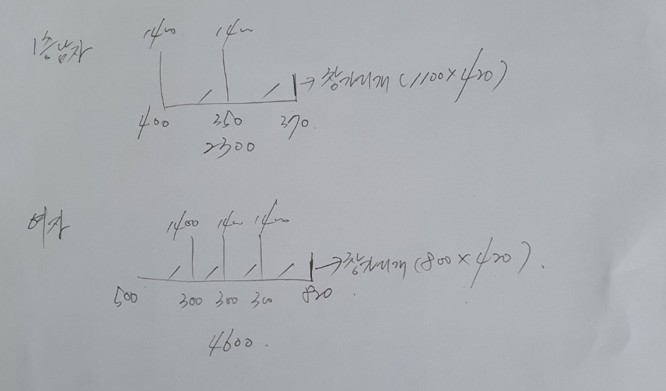 1층남자
1400 1400
→창가리개 (1100×420)
400 350 370
2300
여자
1400 1400 1400
→창가리개 (800×420).
500 300 300 300 820
4600.